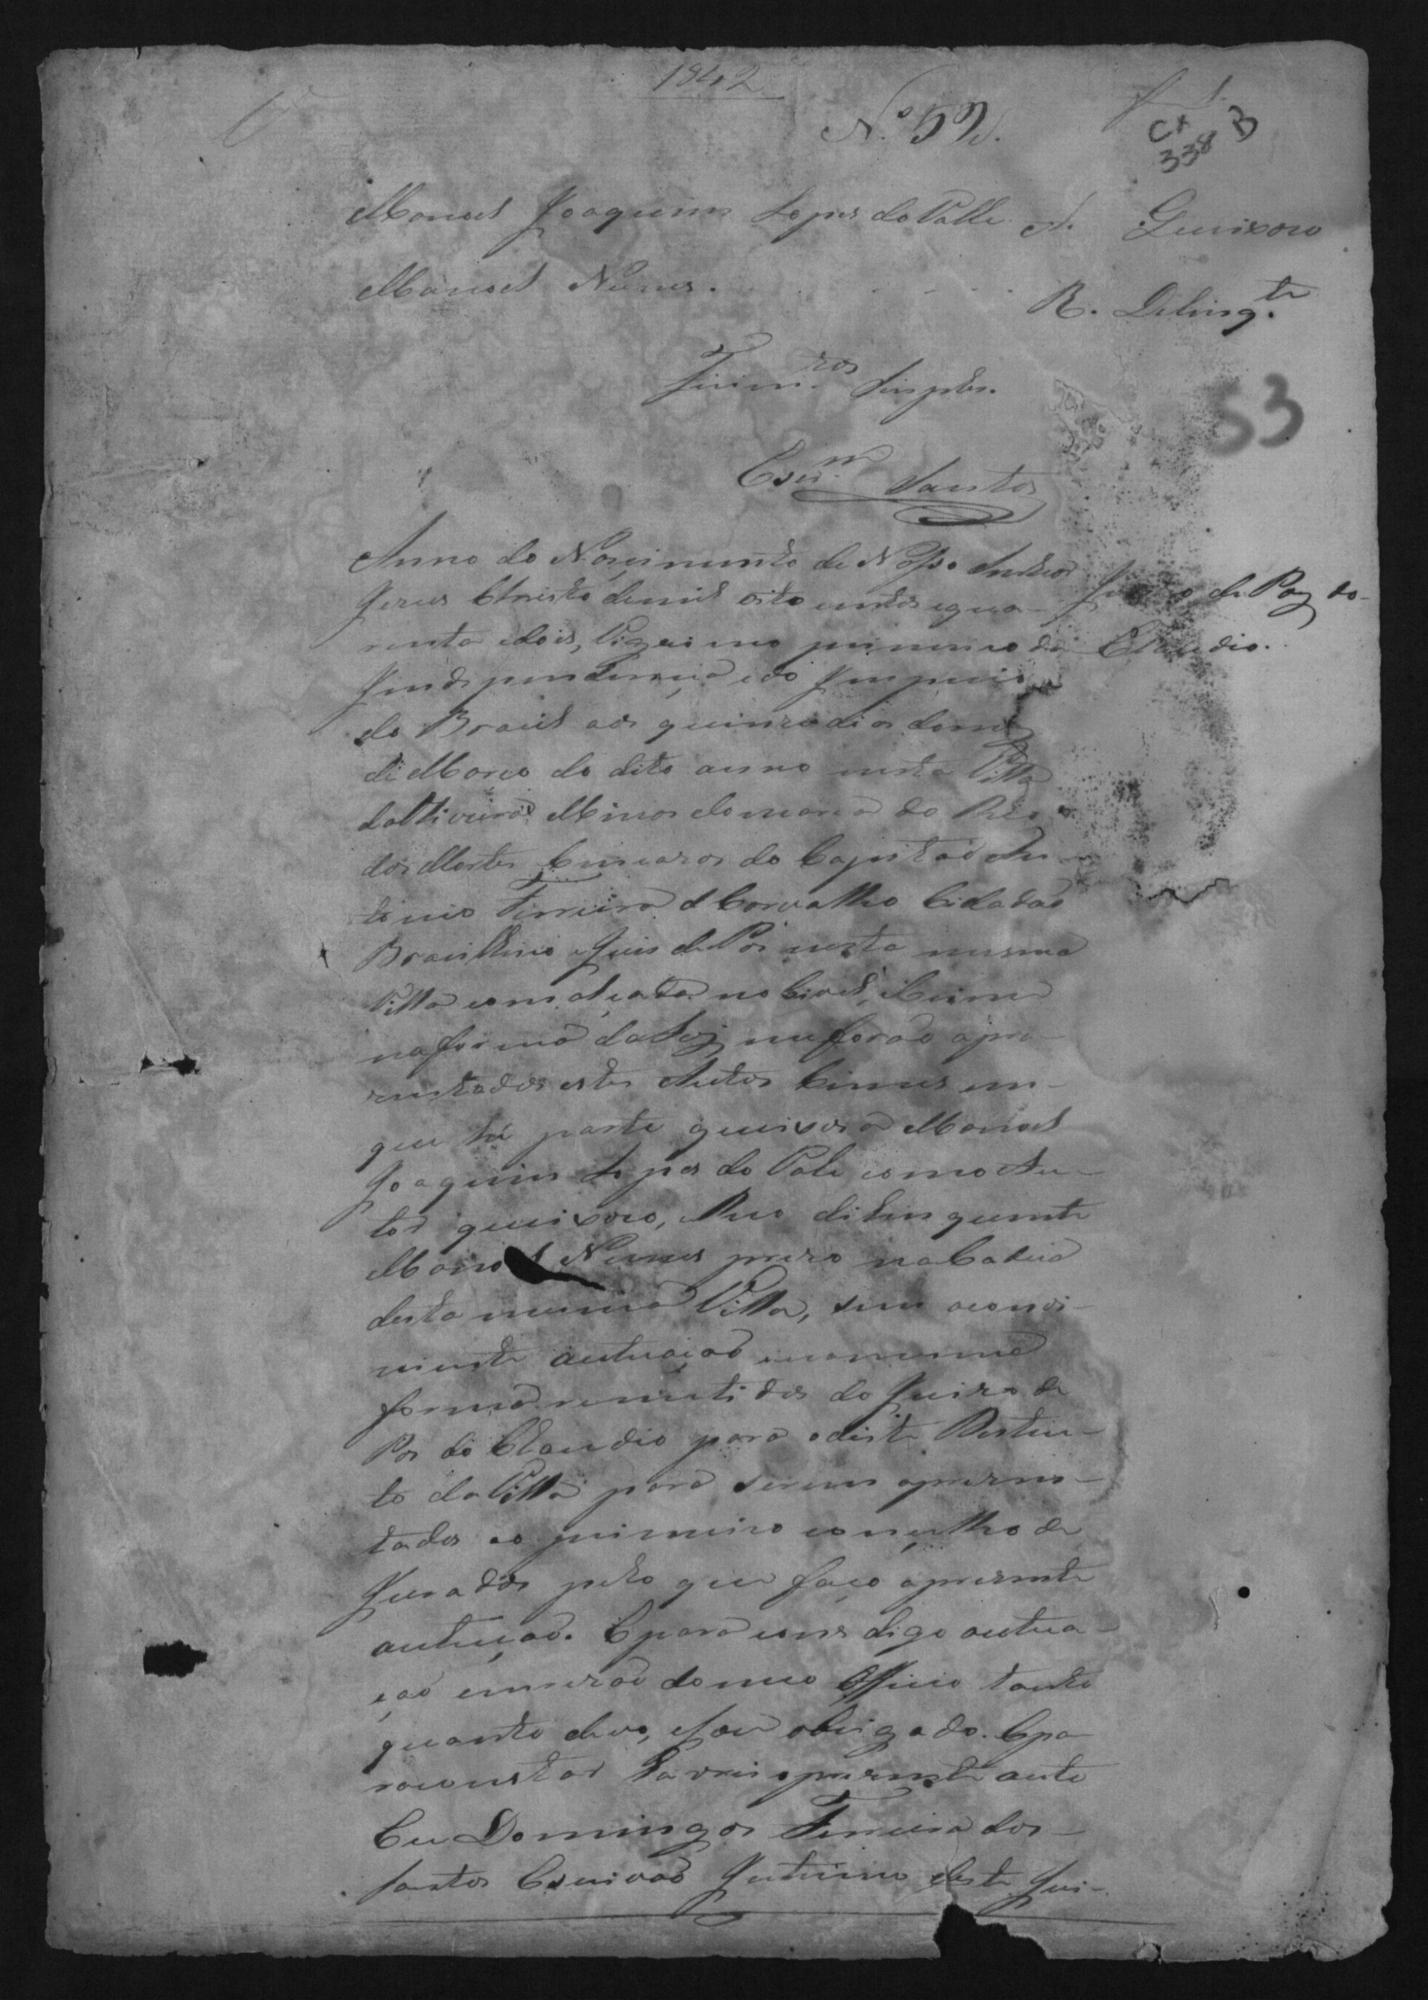 1842
Nº 52.
Cx
338 B
Manoel Joaquim Lopes do Valle A. Queixozo
Manoel Nunes. R. Delinq.te
53
Ferim.tos Simples.
Escr.m Santos
Anno do Nascimento de Nosso Senhor
Jesus Christo de mil oito centos e qua-
renta e dois, Vigesimo primeiro da
Juizo de Paz do
Claudio.
Independencia e do Imperio
do Brasil aos quinze dias do mez
de Março do dito anno nesta Villa
da Oliveira Minas Comarca do Rio
das Mortes Em cazas do Capitão An
tonio Ferreira d Carvalho Cidadão
Brasilleiro e Juis de Pas nesta mesma
Villa com alçada no Civel, e Crime
na forma da Ley, me forão apre
zentados estes Autos Crimes em
que hé parte queixoza Manoel
Joaquim Lopes do Vale como Au-
tor queixozo, e Reo delinquente
Manoel Nunes prezo na Cadeia
desta mesma Villa, sem a conve-
niente autuação e na mesma
forma remetidos do Juizo de
Pas do Claudio para o deste Destric-
to da Villa para serem aprezen-
tados ao primeiro conselho de
Jurados pelo que faço a prezente
autuação. E para cons digo autua-
ção em rezão do meo Officio tanto
quanto devo, e sou obrigado. E pa-
ra constar lavrei o prezente auto
Eu Domingos Ferreira dos
Santos Escrivão Interino deste Jui-